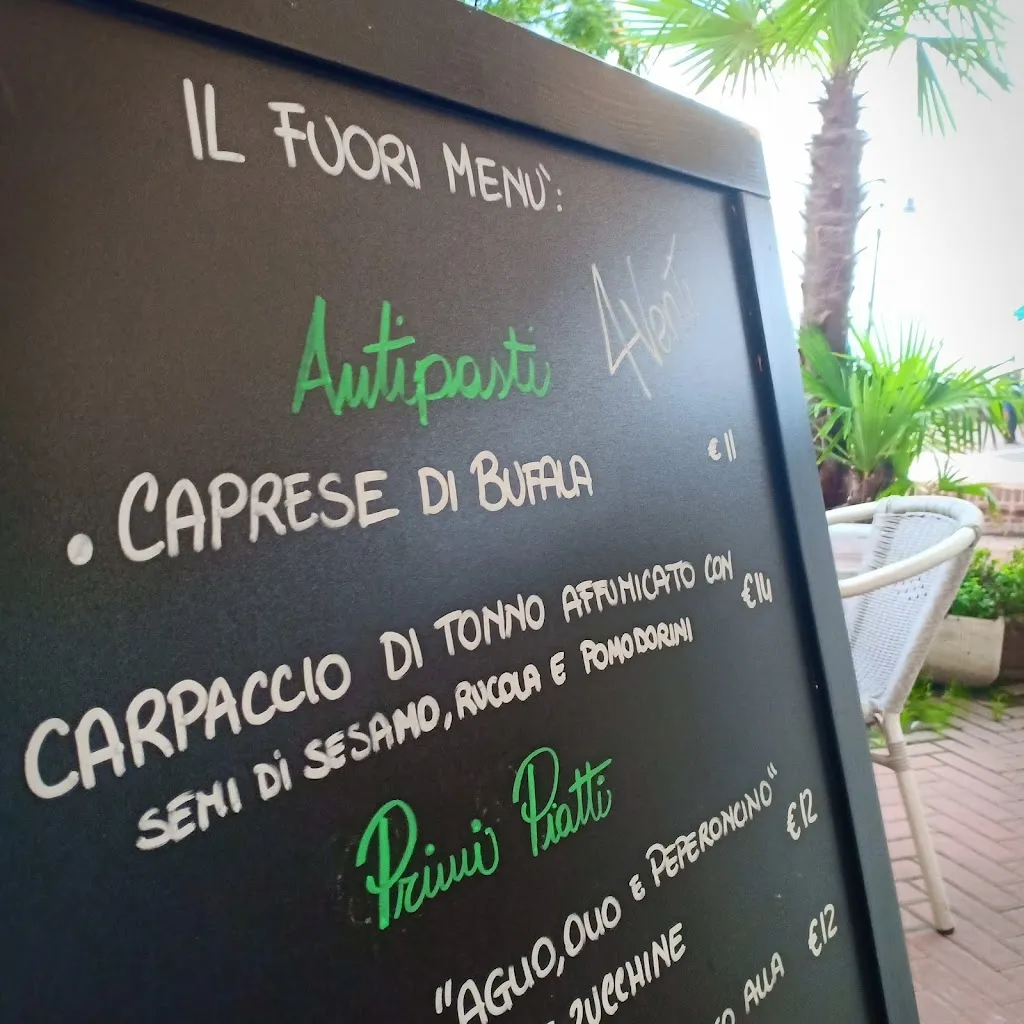 IL FUORI MENU':
4 Venti
Antipasti
• CAPRESE DI BUFALA €11
CARPACCIO DI TONNO AFFUMICATO CON
SEMI DI SESAMO, RUCOLA E POMODORINI €14
Primi Piatti
"AGLIO, OLIO E PEPERONCINO"
ZUCCHINE €12
ALLA €12